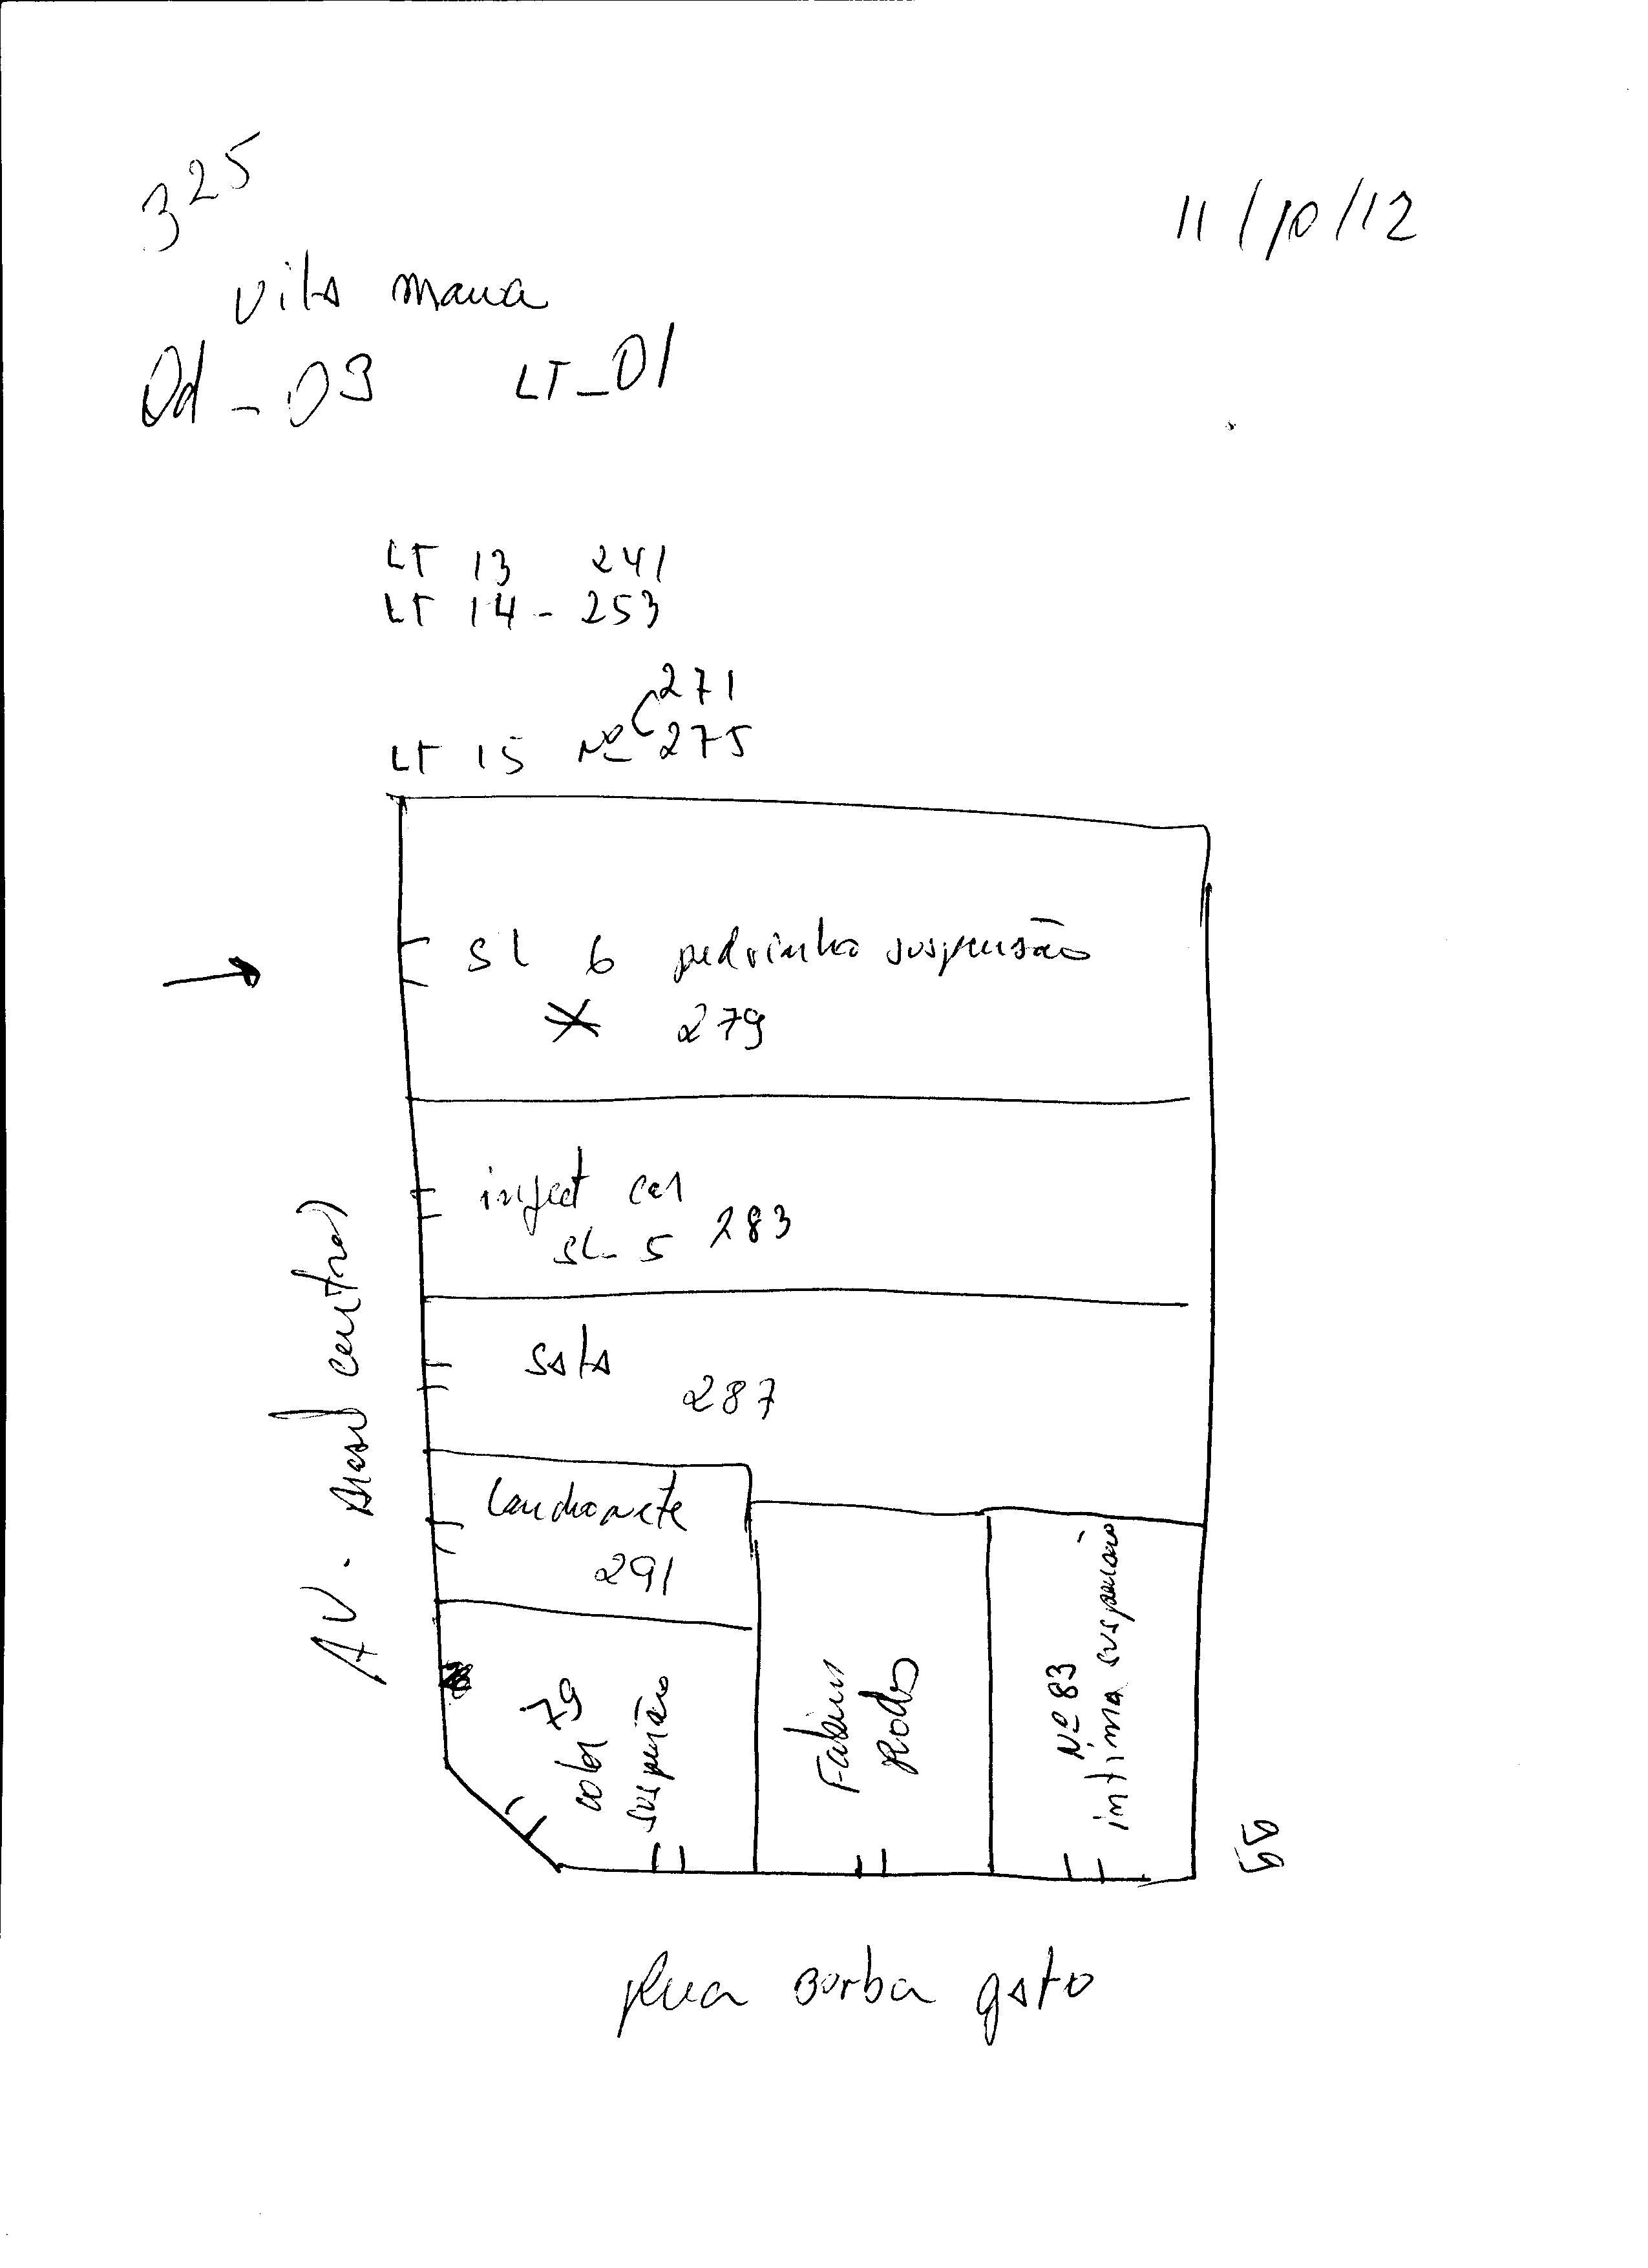 325
11/10/12
Vila maua
Qd - 03 LT - 01
LT 13 241
LT 14 - 253
271
LT 15 Nº 275
SL 6 pedrinho suspensão
279
inject car
SL 5 283
sala
287
Lanchonete
291
79
suspensão
Fabinn
Rodas
Nº 83
intima suspensão
59
AV. central
Rua Borba gato